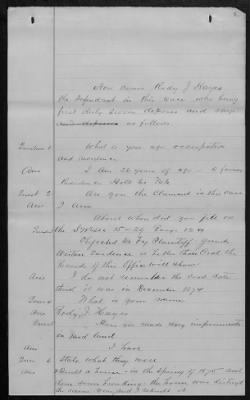 Now comes Rudy J. Hayes
the defendant in this case who being
first duly sworn deposes and says
as follows
Question 1 What is your age occupation
and residence
Ans I am 26 years of age - a farmer
Residence Holt Co Neb
Quest 2 Are you the Claimant in this case
Ans I Am
About when did you file on
the
Objected to by Plaintiff Grounds
Written Evidence is better than Oral the
Records of this Office will show
Ans I do not remember the exact date
think it was in December 1874
What is your name
Ans Rudy J. Hayes
Have you made any improvements
on said land
Ans I have
Ques 6 State what they were
Ans Built a house in the Spring of 1875 and
done some breaking. the house was destroyed
and I rebuilt it